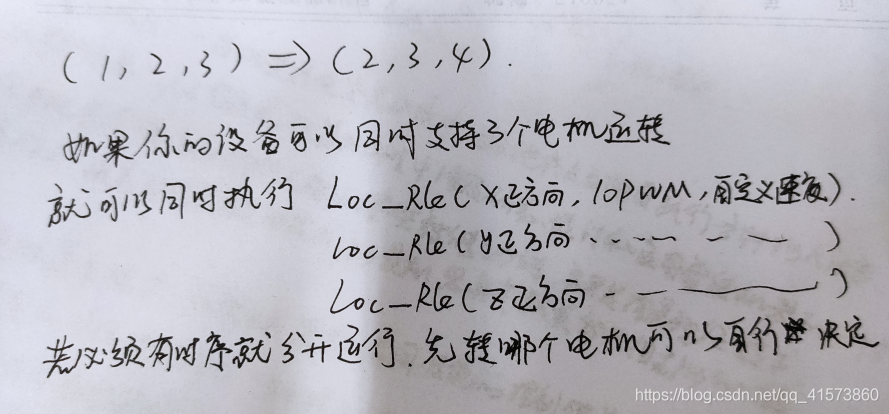 (1,2,3) => (2,3,4).
如果你的设备可以同时支持3个电机运转
就可以同时执行 Loc_Rle(X正方向,10PWM,自定义速度).
Loc_Rle(y正方向 ..... — — )
Loc_Rle(z正方向 - — —— )
若必须有时序就分开运行.先转哪个电机可以自行决定
https://blog.csdn.net/qq_41573860